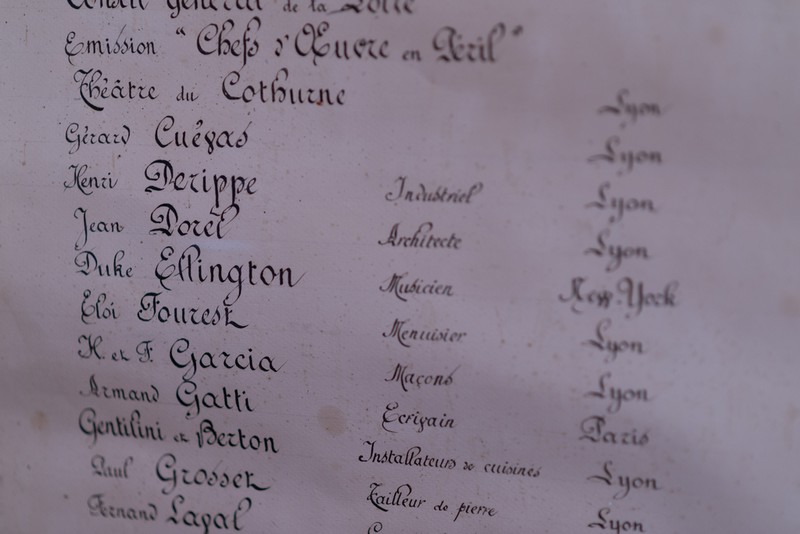 Conseil Général de la Loire
Emission "Chefs d'Œuvre en Péril"
Théâtre du Cothurne Lyon
Gérard Cuévas Lyon
Henri Derippe Industriel Lyon
Jean Dorel Architecte Lyon
Duke Ellington Musicien New-York
Eloi Fourest Menuisier Lyon
H. et F. Garcia Maçons Lyon
Armand Gatti Ecrivain Paris
Gentilini et Berton Installateurs de cuisines Lyon
Paul Grosset Tailleur de pierre Lyon
Fernand Laval